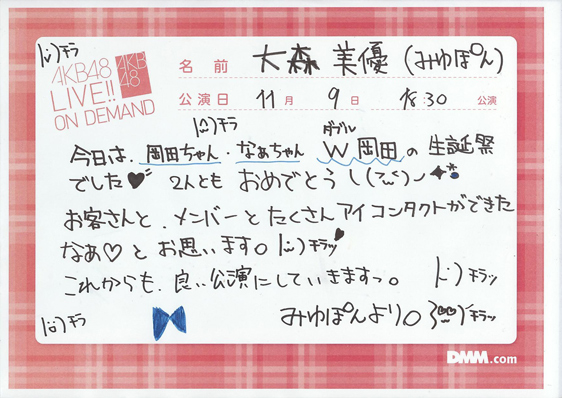 |ω・)チラ
AKB48
LIVE!!
ON DEMAND
AKB
48
名前 大森美優(みゆぽん)
公演日 11月 9日 18:30 公演
チラ
ダブル
今日は、岡田ちゃん・なぁちゃん W岡田の生誕祭
でした♥ 2人とも おめでとう
お客さんと、メンバーとたくさんアイコンタクトができた
なあ♡とお思います。|ω・)チラッ
これからも、良い公演にしていきますっ。 チラッ
チラ みゆぽんより。 チラッ
DMM.com